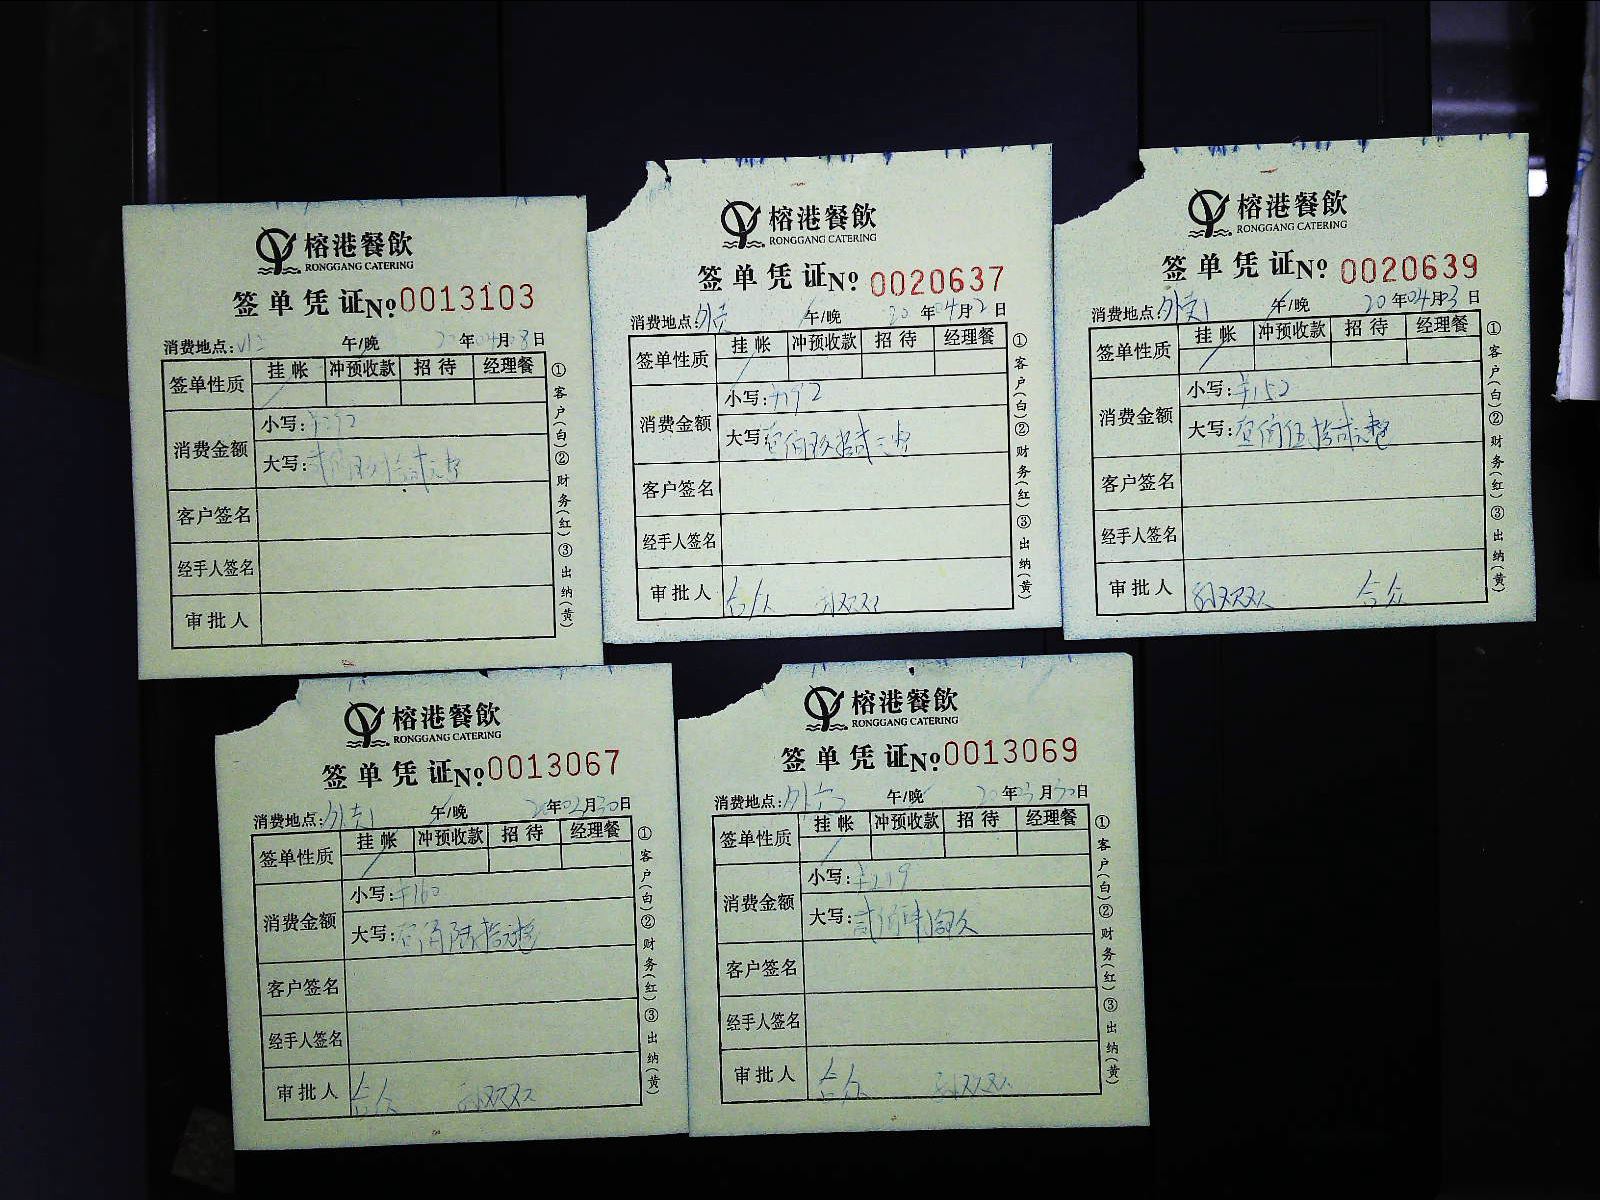 榕港餐飲
RONGGANG CATERING
签单凭证 №0013103
消费地点: 午/晚 20年04月03日
签单性质 挂帐 冲预收款 招待 经理餐
消费金额 小写:¥292
大写:贰佰玖拾贰元整
客户签名
经手人签名
审批人
①客户(白)②财务(红)③出纳(黄)
榕港餐飲
RONGGANG CATERING
签单凭证 №0020637
消费地点:外卖 午/晚 20年04月2日
签单性质 挂帐 冲预收款 招待 经理餐
消费金额 小写:¥192
大写:壹佰玖拾贰元整
客户签名
经手人签名
审批人 合众 孙双双
①客户(白)②财务(红)③出纳(黄)
榕港餐飲
RONGGANG CATERING
签单凭证 №0020639
消费地点:外卖1 午/晚 20年04月03日
签单性质 挂帐 冲预收款 招待 经理餐
消费金额 小写:¥152
大写:壹佰伍拾贰元整
客户签名
经手人签名
审批人 孙双双 合众
①客户(白)②财务(红)③出纳(黄)
榕港餐飲
RONGGANG CATERING
签单凭证 №0013067
消费地点:外卖1 午/晚 20年03月30日
签单性质 挂帐 冲预收款 招待 经理餐
消费金额 小写:¥160
大写:壹佰陆拾元整
客户签名
经手人签名
审批人 合众 孙双双
①客户(白)②财务(红)③出纳(黄)
榕港餐飲
RONGGANG CATERING
签单凭证 №0013069
消费地点:外 午/晚 20年03月30日
签单性质 挂帐 冲预收款 招待 经理餐
消费金额 小写:
大写:贰佰
客户签名
经手人签名
审批人 合众 孙双双
①客户(白)②财务(红)③出纳(黄)